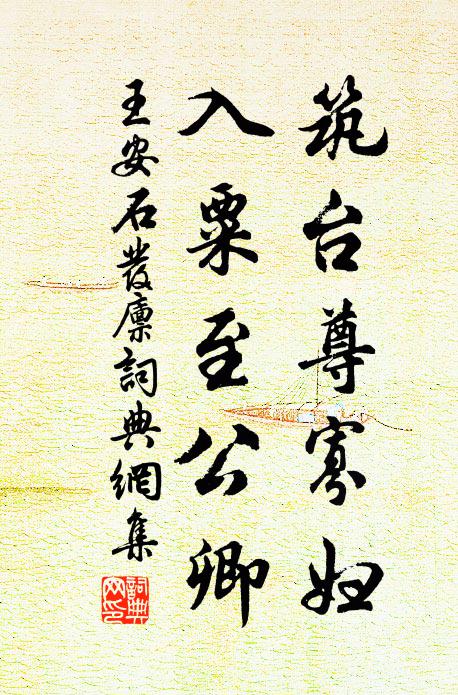 筑台尊寡妇
入粟至公卿
王安石發廩詞典網集
詞典网印